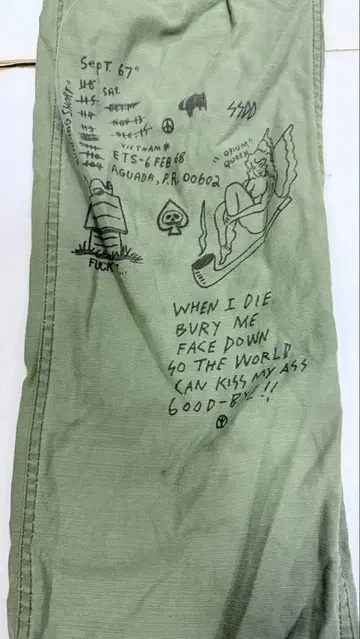 SEPT. 67"
SAT.
NOV-13
DEC. 15
VIETNAM
ETS-6 FEB 68
AGUADA, P.R. 00602
SSDD
"OPIUM
QUEEN"
FUCK
WHEN I DIE
BURY ME
FACE DOWN
SO THE WORLD
CAN KISS MY ASS
GOOD-BYE!!